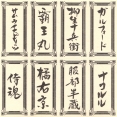 ガルフォード
柳生十兵衛
覇王丸
ナコルル
服部半蔵
橘右京
侍魂